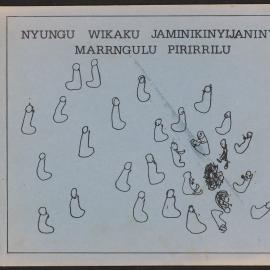 NYUNGU WIKAKU JAMINIKINYIJANINY
MARRNGULU PIRIRRILU